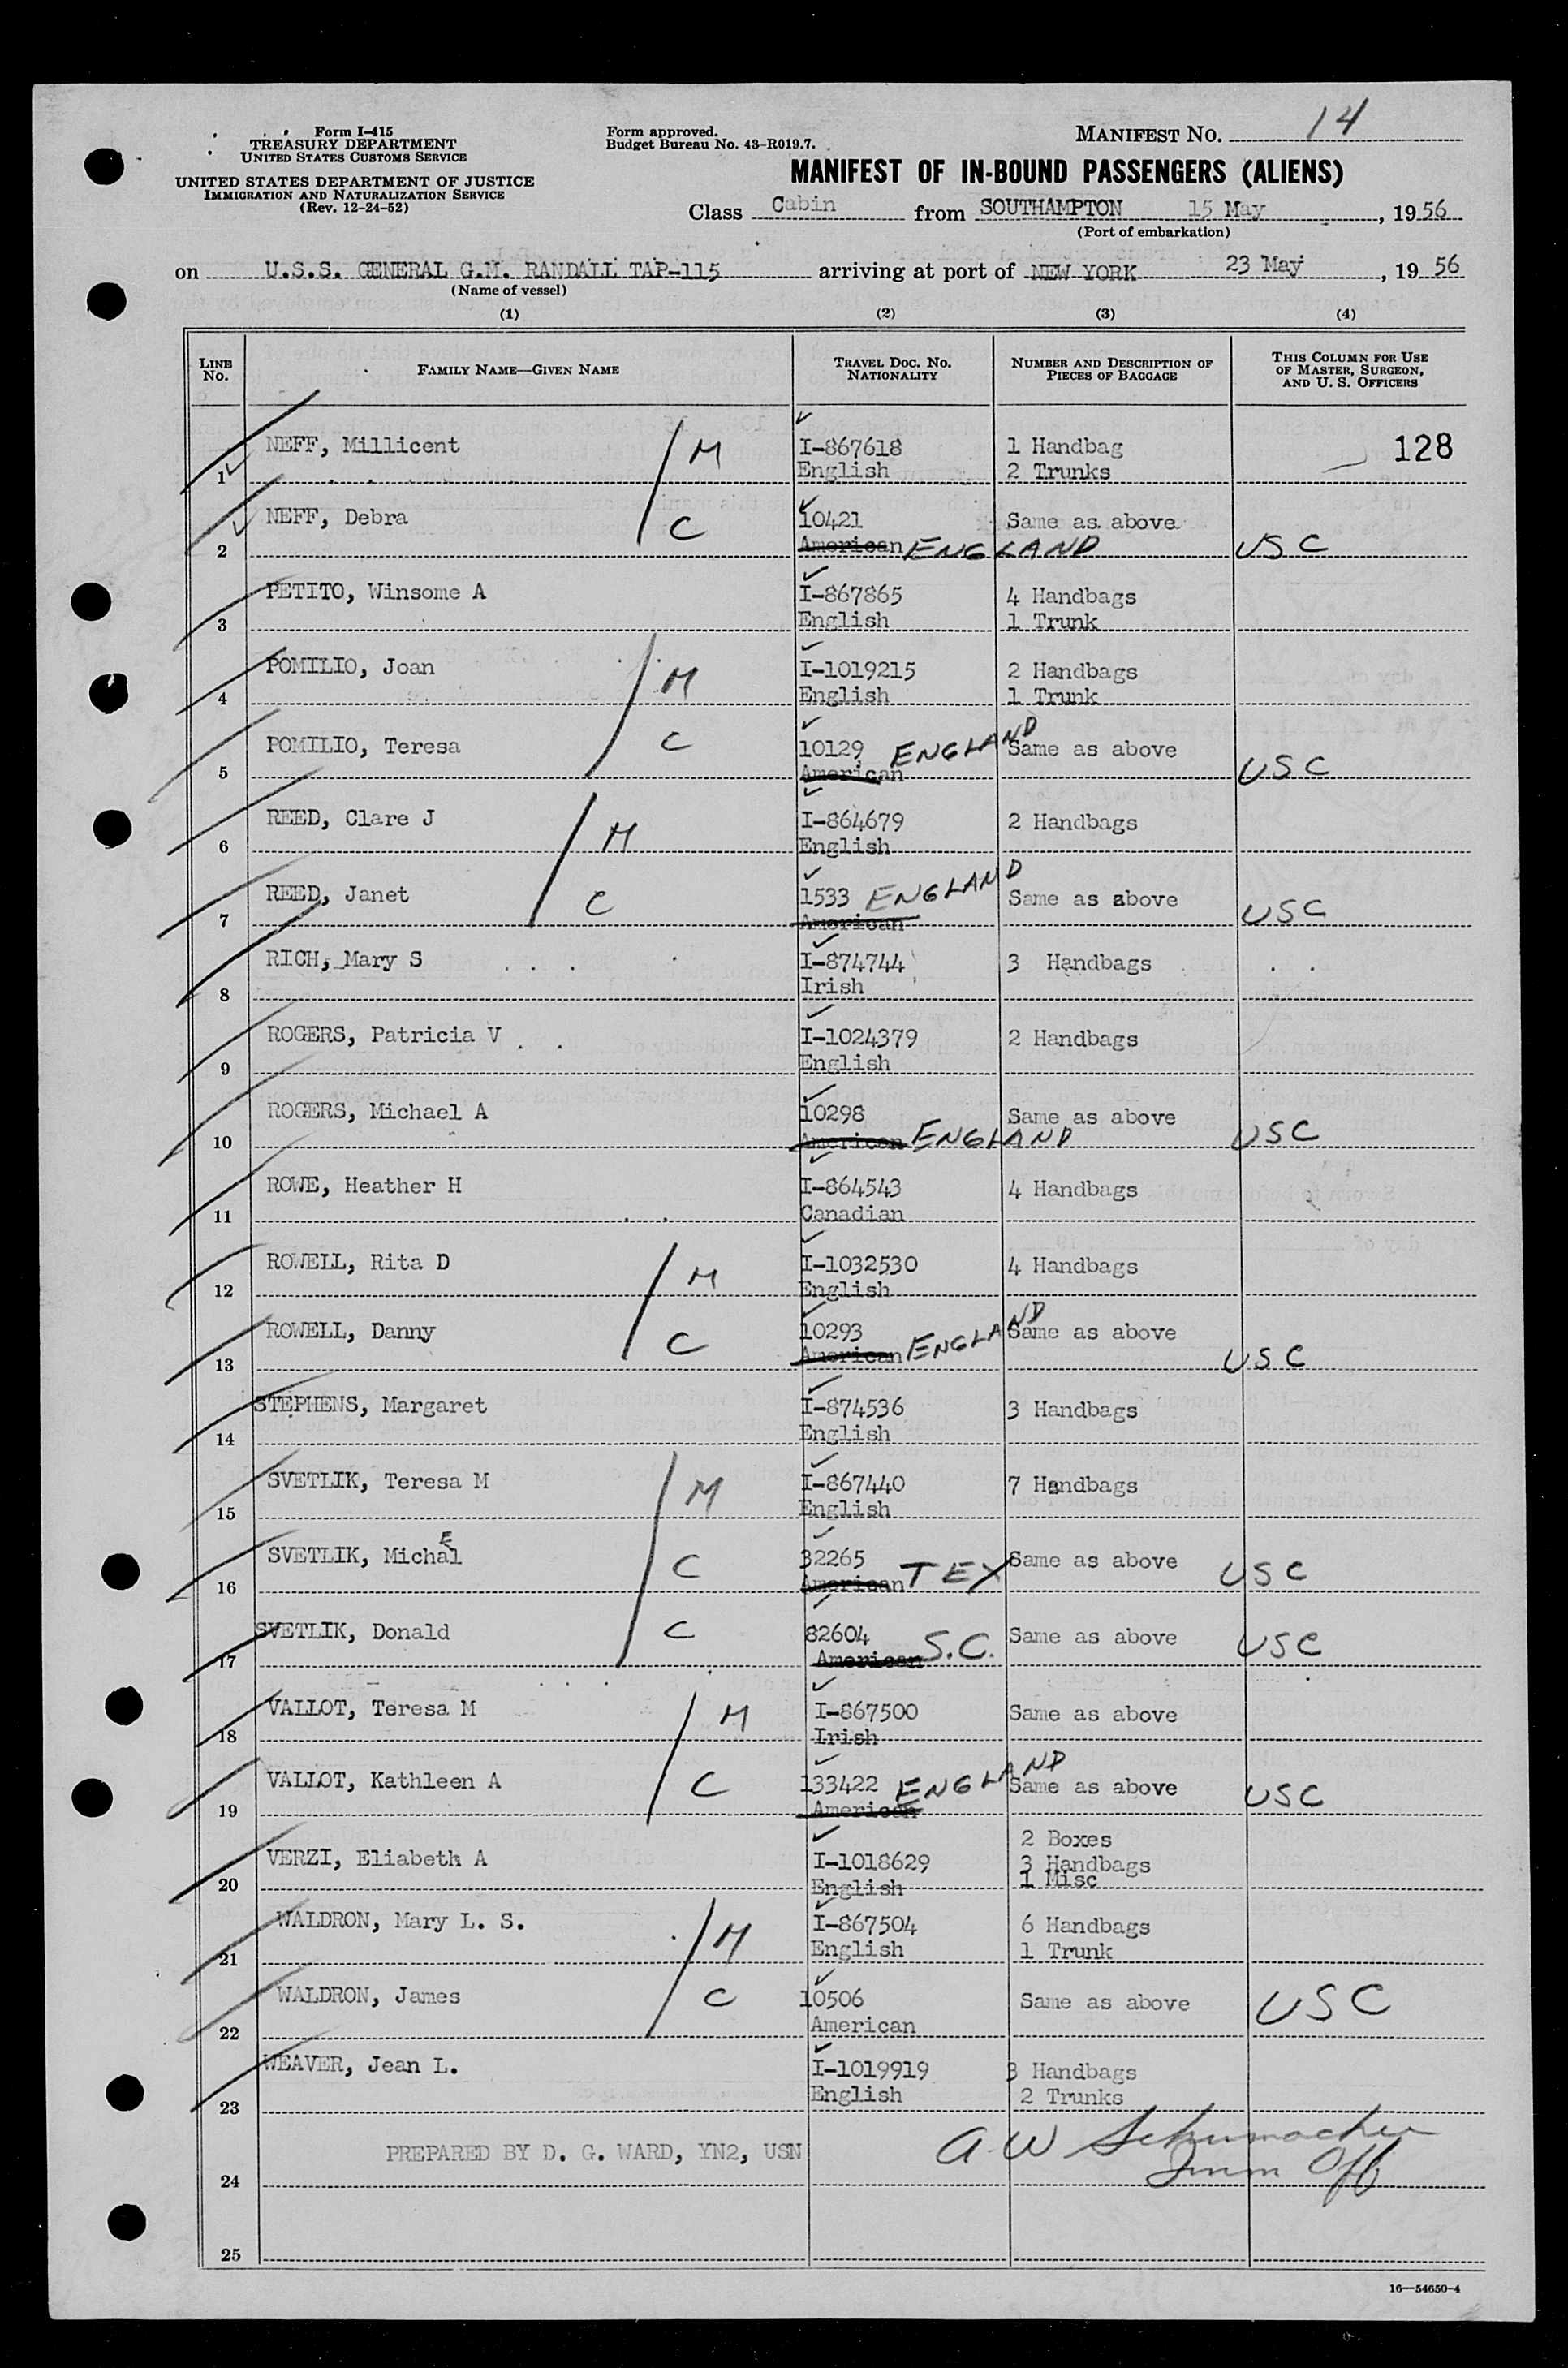 Form I-415
TREASURY DEPARTMENT
UNITED STATES CUSTOMS SERVICE
UNITED STATES DEPARTMENT OF JUSTICE
IMMIGRATION AND NATURALIZATION SERVICE
(Rev. 12-24-52)
Form approved.
Budget Bureau No. 43-R019.7.
MANIFEST NO. 14
MANIFEST OF IN-BOUND PASSENGERS (ALIENS)
Class Cabin from SOUTHAMPTON 15 May, 1956
(Port of embarkation)
on U.S.S. GENERAL G.M. RANDALL TAP-115 arriving at port of NEW YORK 23 May, 1956
(Name of vessel)
(1) (2) (3) (4)
LINE NO. FAMILY NAME—GIVEN NAME TRAVEL DOC. NO. NATIONALITY NUMBER AND DESCRIPTION OF PIECES OF BAGGAGE THIS COLUMN FOR USE OF MASTER, SURGEON, AND U. S. OFFICERS
NEFF, Millicent M I-867618 1 Handbag 128
1 English 2 Trunks
NEFF, Debra C 10421 Same as above
2 American ENGLAND USC
PETITO, Winsome A I-867865 4 Handbags
3 English 1 Trunk
POMILIO, Joan M I-1019215 2 Handbags
4 English 1 Trunk
POMILIO, Teresa C 10129 ENGLAND Same as above
5 American USC
REED, Clare J M I-864679 2 Handbags
6 English
REED, Janet C 1533 ENGLAND Same as above
7 American USC
RICH, Mary S I-874744 3 Handbags
8 Irish
ROGERS, Patricia V I-1024379 2 Handbags
9 English
ROGERS, Michael A 10298 Same as above
10 American ENGLAND USC
ROWE, Heather H I-864543 4 Handbags
11 Canadian
ROWELL, Rita D M I-1032530 4 Handbags
12 English
ROWELL, Danny C 10293 ENGLAND Same as above
13 American USC
STEPHENS, Margaret I-874536 3 Handbags
14 English
SVETLIK, Teresa M M I-867440 7 Handbags
15 English
E
SVETLIK, Michal C 32265 Same as above
16 American TEX USC
SVETLIK, Donald C 82604 S.C. Same as above USC
17 American
VALLOT, Teresa M M I-867500 Same as above
18 Irish
VALLOT, Kathleen A C 133422 ENGLAND Same as above USC
19 American
2 Boxes
VERZI, Eliabeth A I-1018629 3 Handbags
20 English 1 Misc
WALDRON, Mary L. S. M I-867504 6 Handbags
21 English 1 Trunk
WALDRON, James C 10506 Same as above USC
22 American
WEAVER, Jean L. I-1019919 3 Handbags
23 English 2 Trunks
PREPARED BY D. G. WARD, YN2, USN A W Schumacher
24 Imm Off
25
16—54650-4